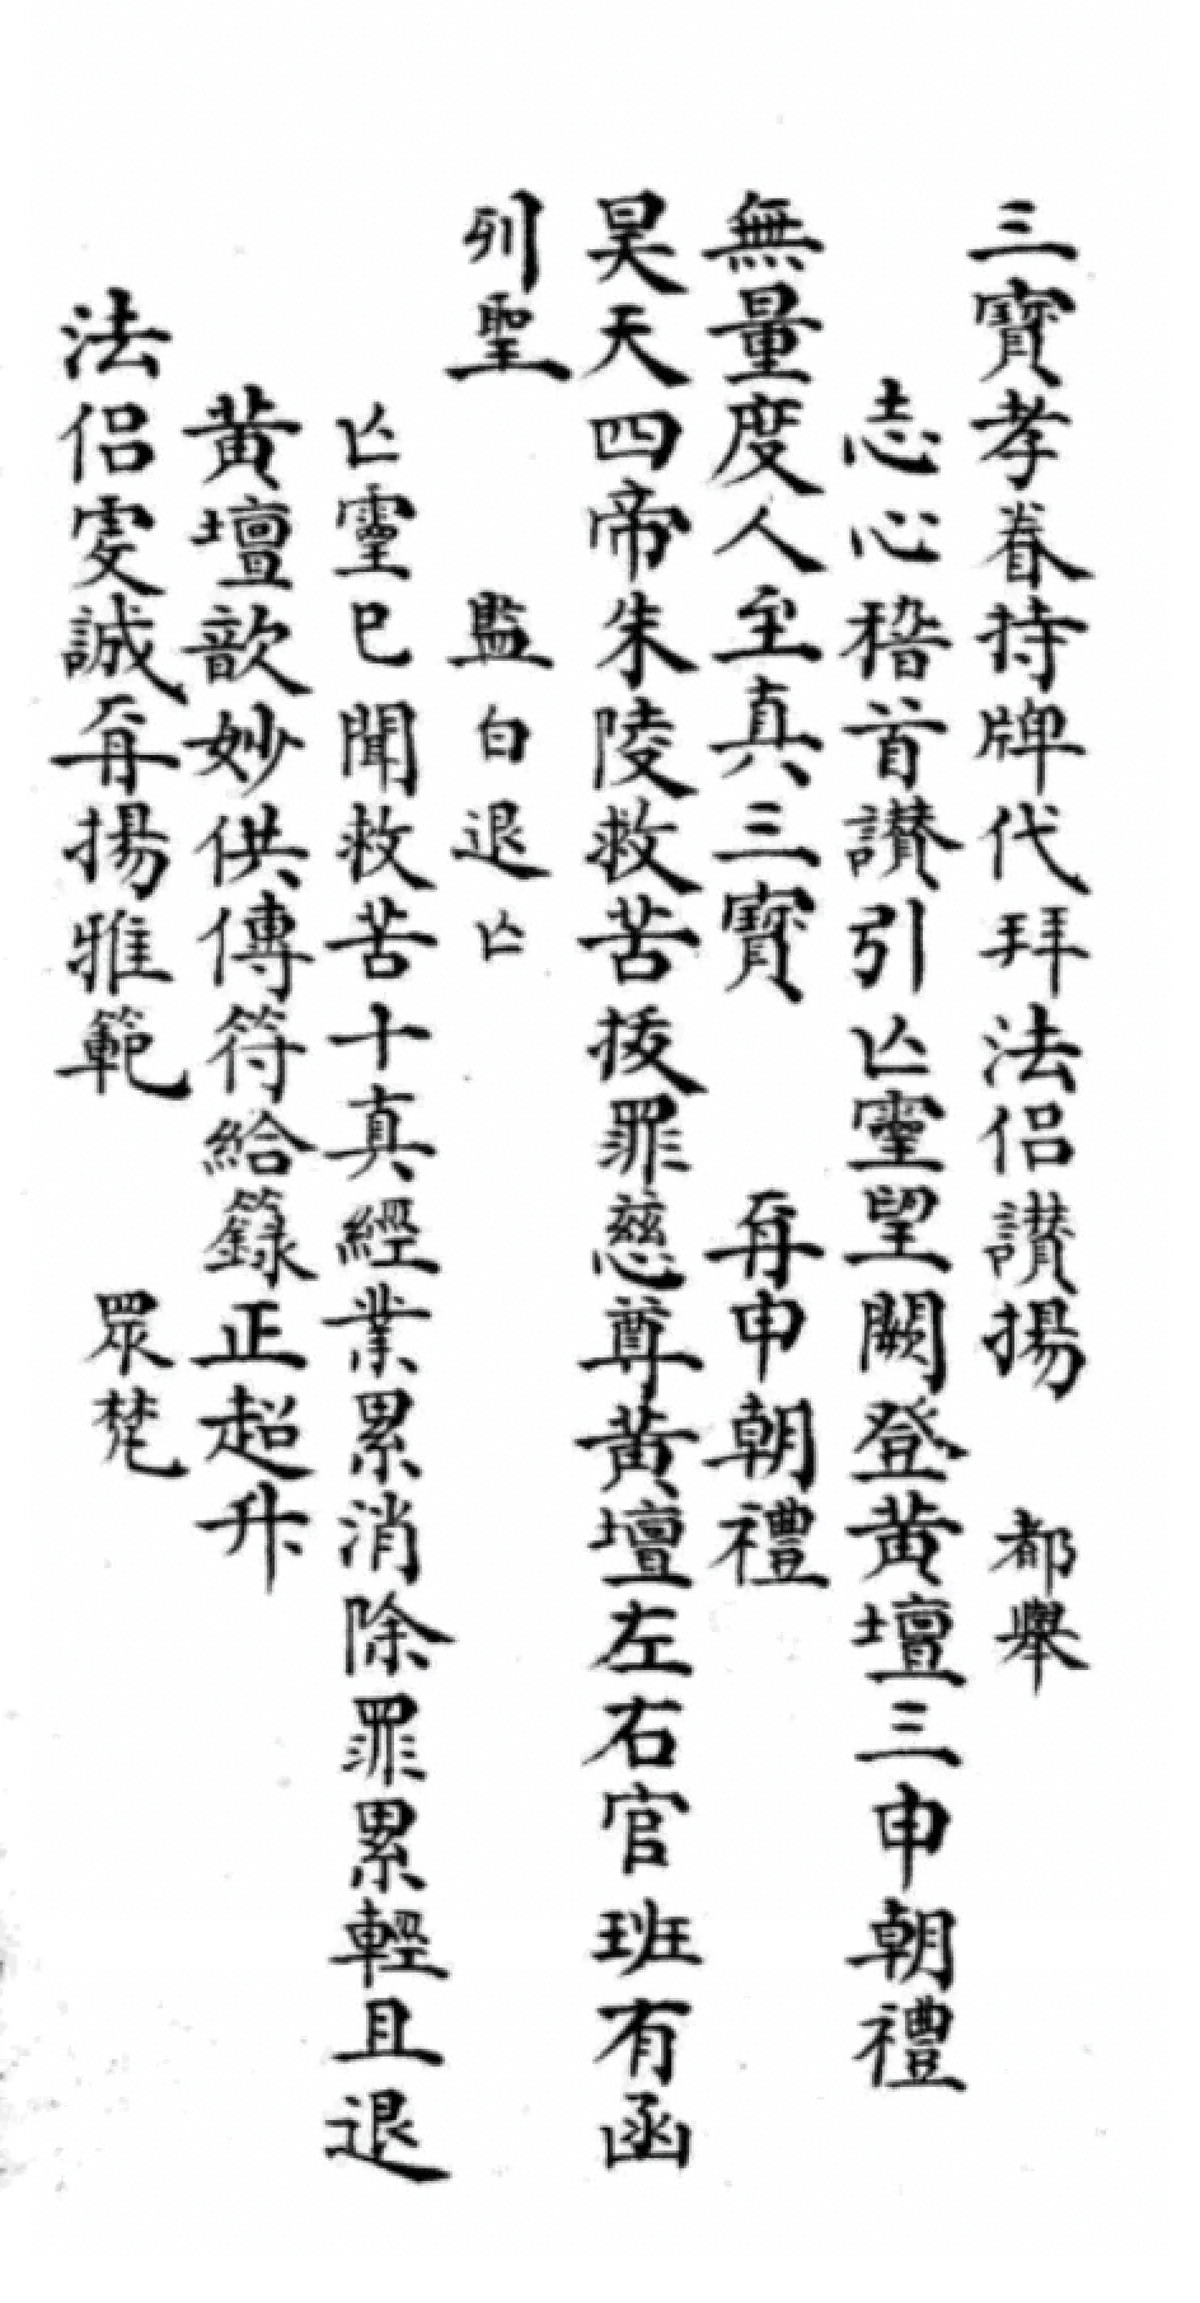 三寶孝眷持牌代拜法侶讃揚 都舉
志心稽首讃引亡靈望闕登黄壇三申朝禮
無量度人至真三寶 再申朝禮
昊天四帝朱陵救苦拔罪慈尊黄壇左右官班有函
列聖 監白退亡
亡靈已聞救苦十真經業累消除罪累輕且退
黄壇歆妙供傳符給籙正超升
法侶虔誠再揚雅範 眾梵